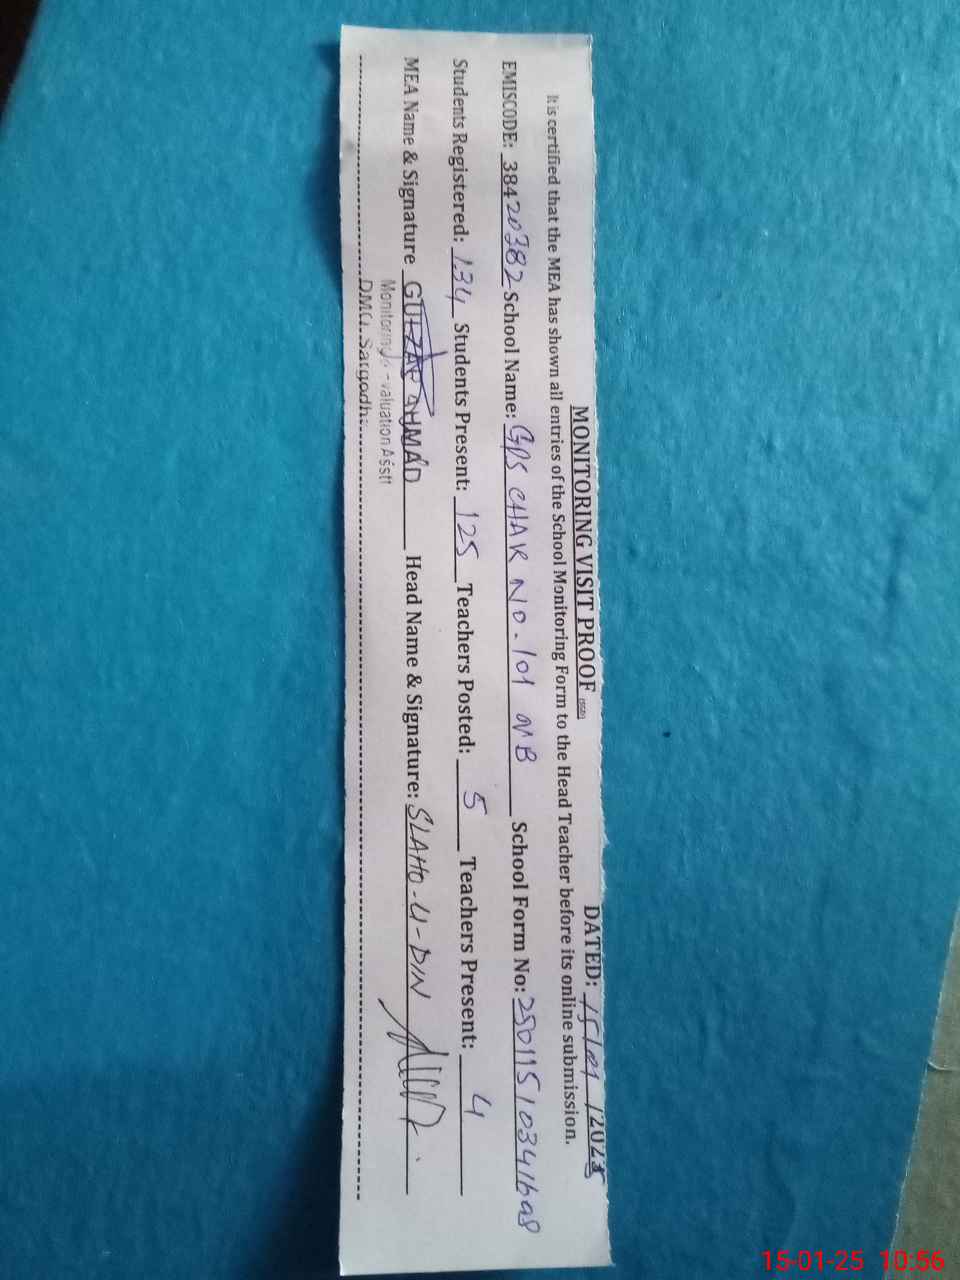 MONITORING VISIT PROOF (SED) DATED: 15/01/2025
It is certified that the MEA has shown all entries of the School Monitoring Form to the Head Teacher before its online submission.
EMISCODE: 38420382 School Name: GPS CHAK NO. 101 NB School Form No: 25011510341698
Students Registered: 134 Students Present: 125 Teachers Posted: 5 Teachers Present: 4
MEA Name & Signature GULZAR AHMAD Head Name & Signature: SLAHO-U-DIN
Monitoring valuation Asstt
DMO, Sargodha
15-01-25 10:56